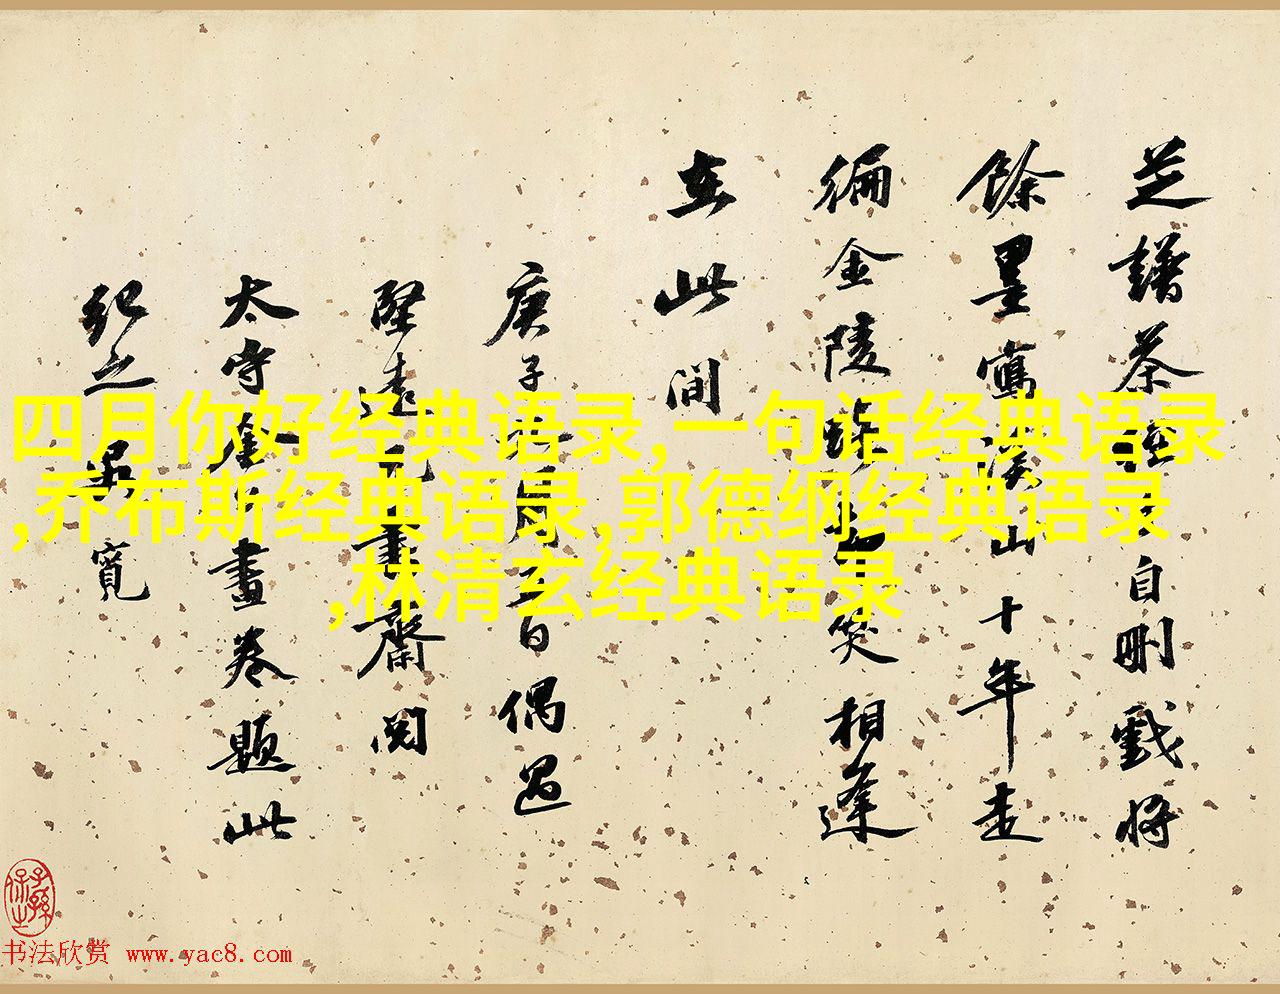 芝譜茶經自刪戲將
餘墨寫溪山十年走
徧金陵笑相逢
在此間
庚子月日偶過
堅遠畫齋閱
太守畫卷題此
紀之吳寬
四月你好经典语录,一句话经典语录
,乔布斯经典语录,郭德纲经典语录
,林清玄经典语录
书法欣赏 www.yac8.com